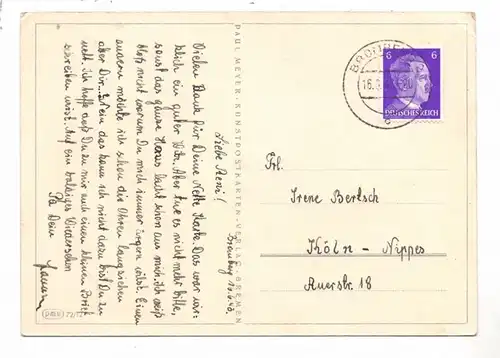 Bromberg 15.6.43.
Liebe Reni!
Vielen Dank für Deine Nette Karte. Das war wirk-
lich ein guter Witz. Aber tue es nicht mehr bitte,
sonst das ganze Haus lacht schon aus mich. Ich weiß
bloß nicht warum Du mich immer ärgern willst. Einen
anderen möchte ich schon die Ohren langziehen
aber Dir... Nein das kann ich nicht dazu bist Du zu
nett. Ich hoffe daß Du zu mir mal einen kleinen Brief
schreiben wirst. Auf ein baldiges Wiedersehen
Dein
PAUL MEYER · KUNSTPOSTKARTEN-VERLAG · BREMEN
BROMBERG
16.
6 6
DEUTSCHES REICH
Frl.
Irene Bertsch
Köln - Nippes
Auerstr. 18